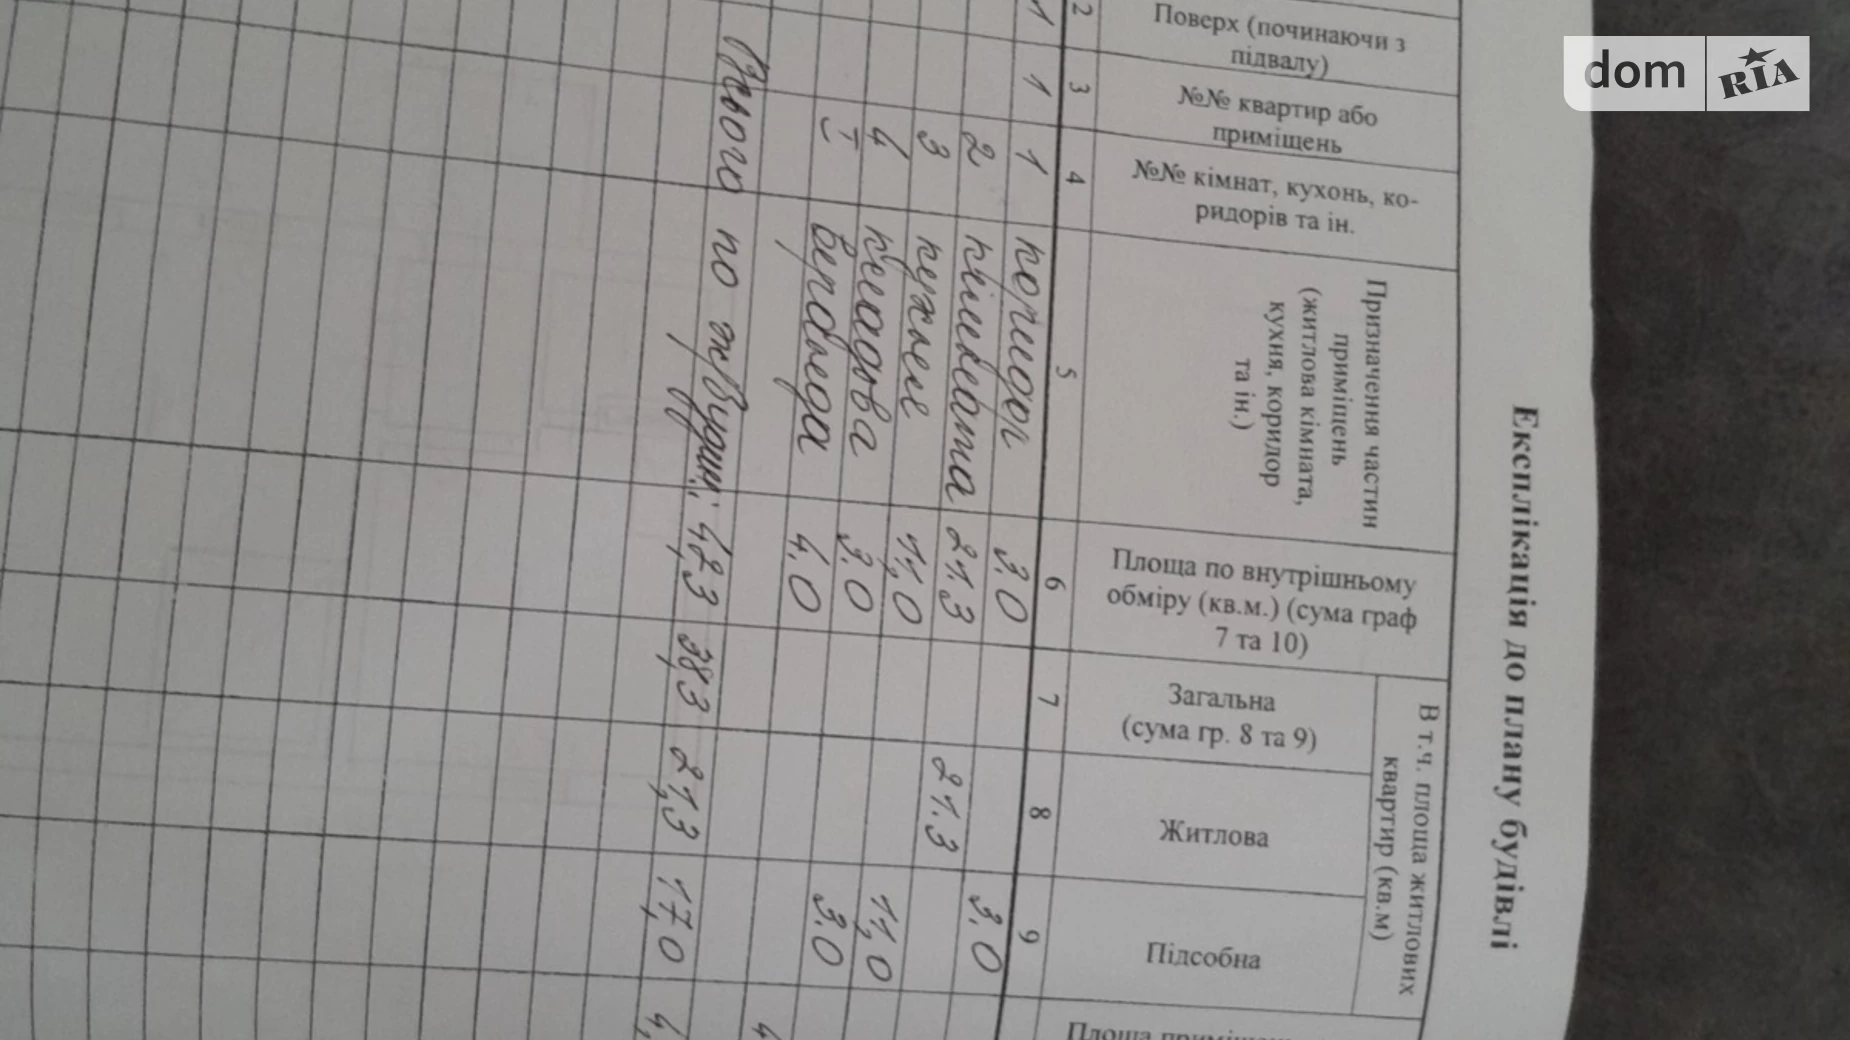 dom RIA
Експлікація до плану будівлі
Поверх (починаючи з
підвалу)
№№ квартир або
приміщень
№№ кімнат, кухонь, ко-
ридорів та ін.
Призначення частин
приміщень
(житлова кімната,
кухня, коридор
та ін.)
Площа по внутрішньому
обміру (кв.м.) (сума граф
7 та 10)
В т.ч. площа житлових
квартир (кв.м)
Загальна
(сума гр. 8 та 9)
Житлова
Підсобна
2 3 4 5 6 7 8 9
1 1 1 коридор 3.0 3.0
2 кімната 21.3 21.3
3 кухня 11,0 11,0
4 кладова 3.0 3.0
I веранда 4,0 4
Всього по житл. будин.: 42,3 38,3 21,3 17,0 4,